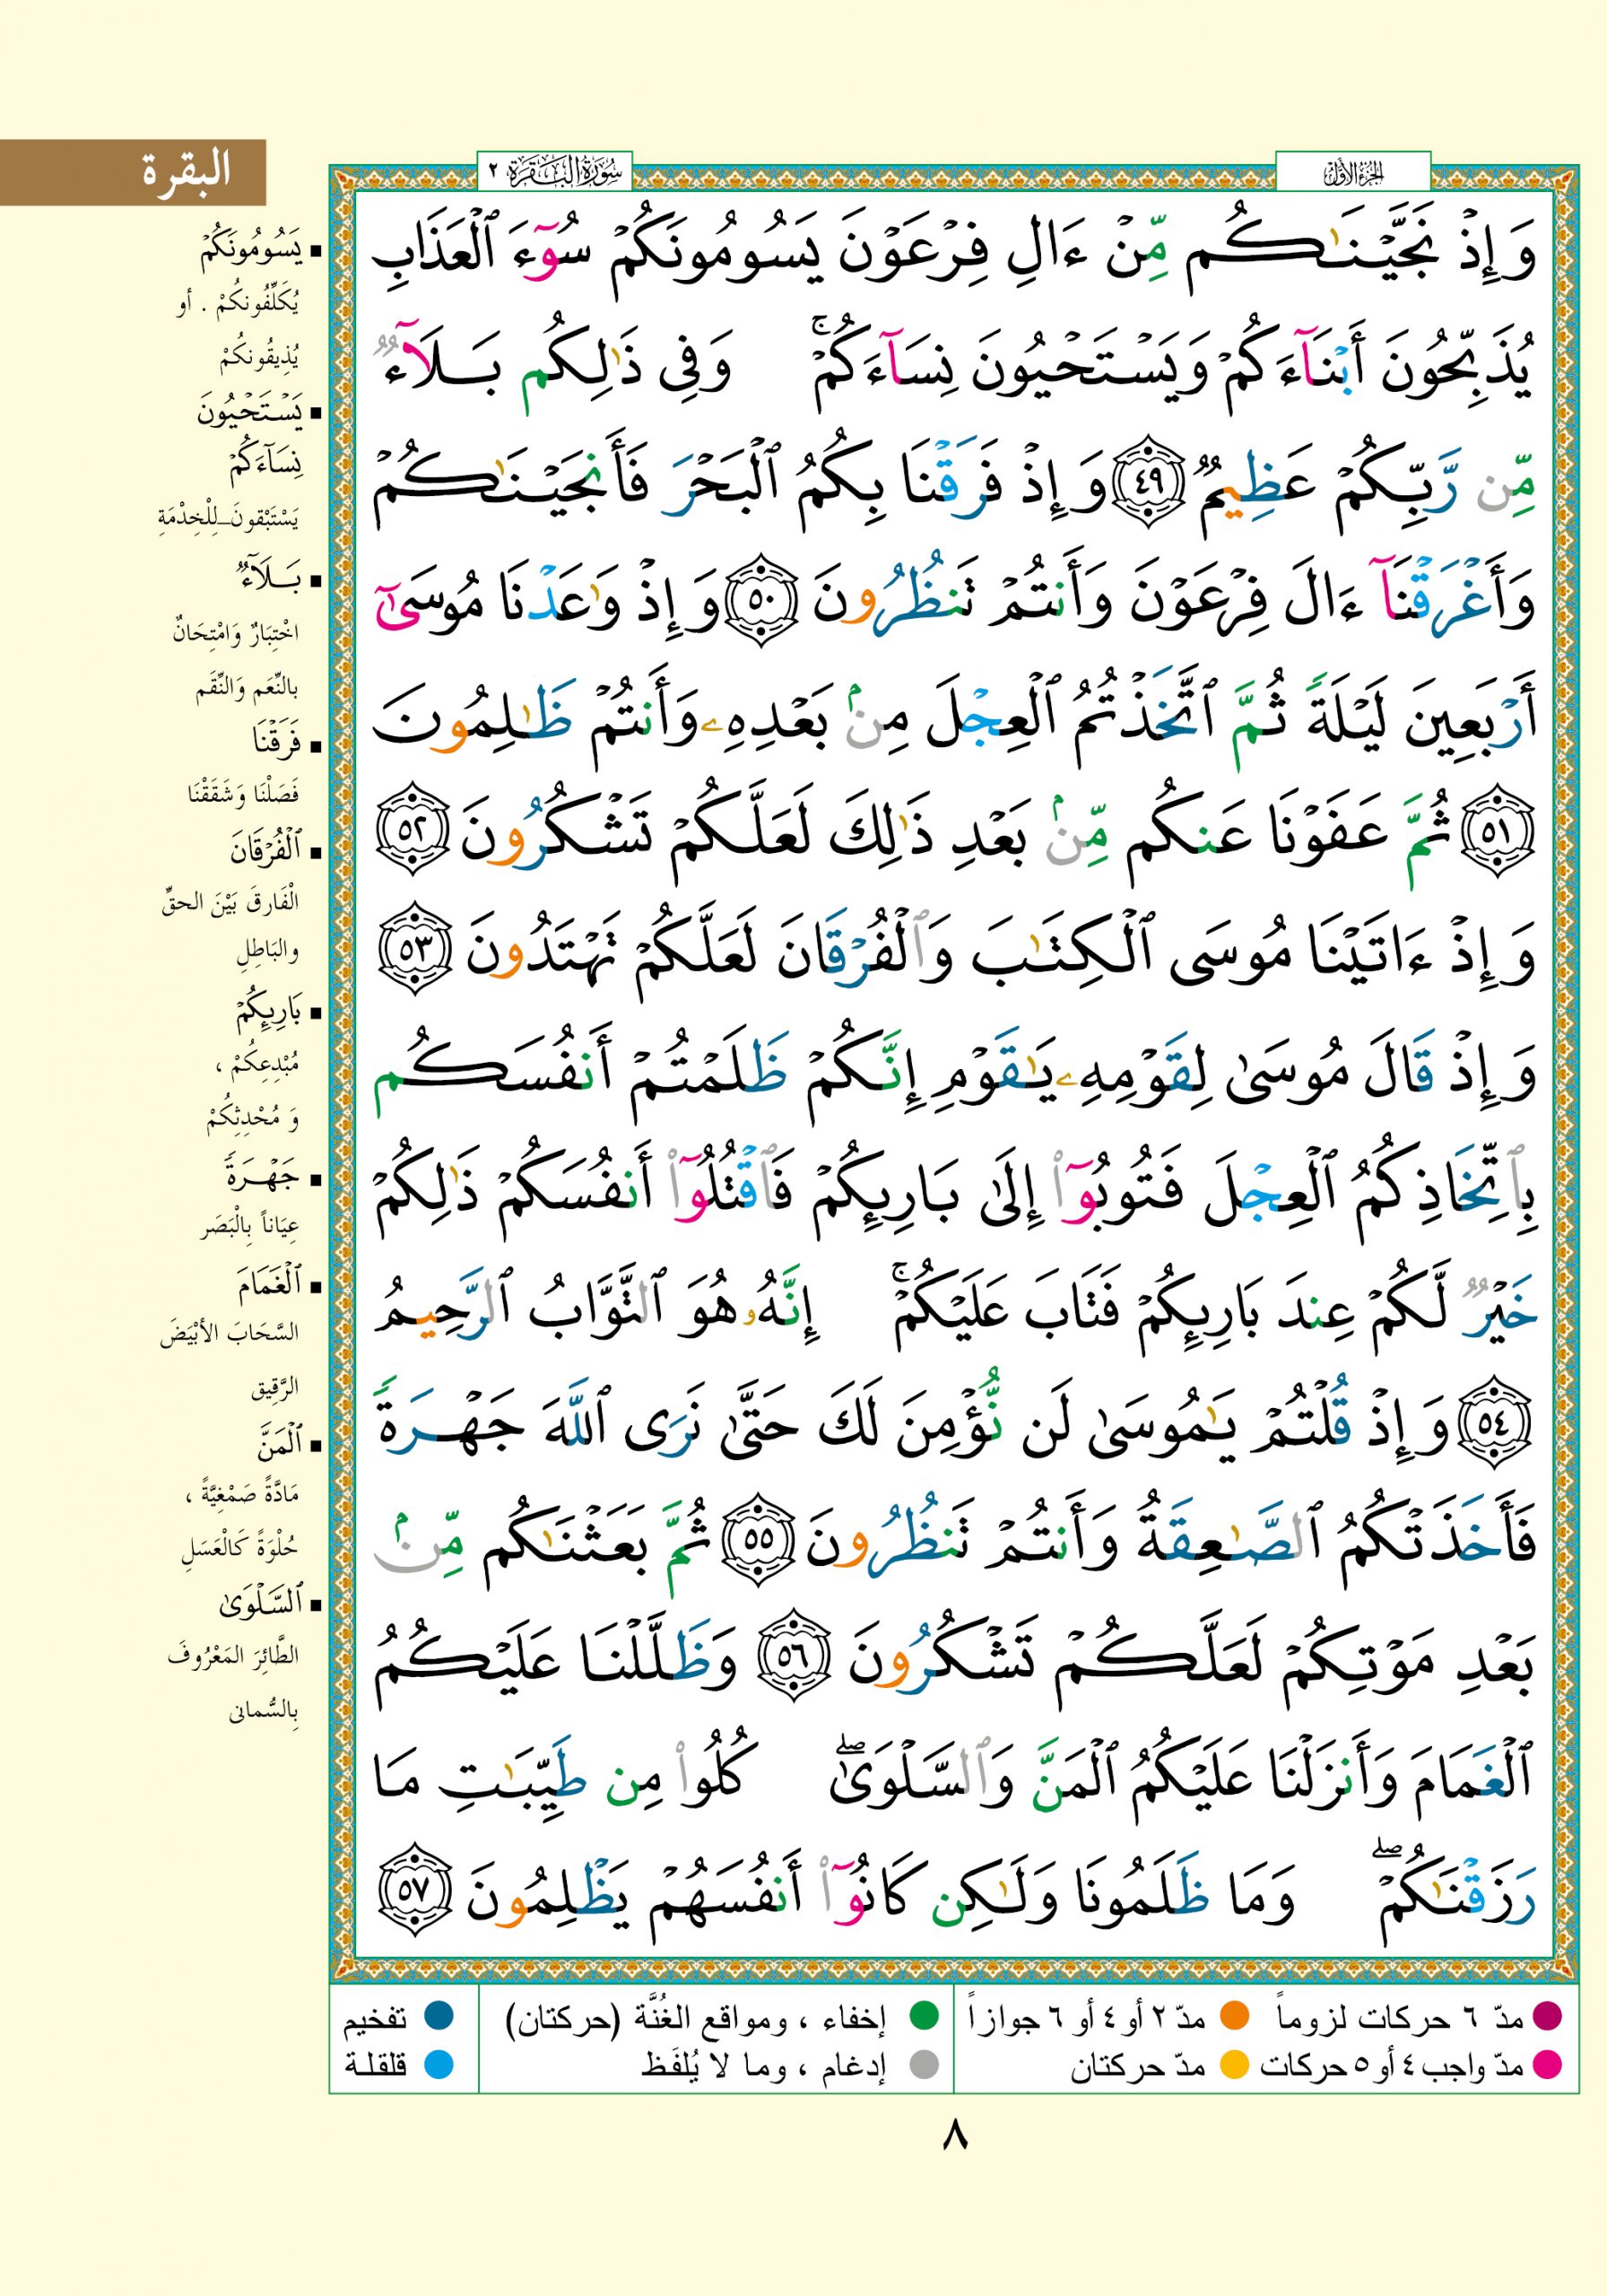 الجزء الأول
سورة البقرة ٢
البقرة
وَإِذْ نَجَّيْنَٰكُم مِّنْ ءَالِ فِرْعَوْنَ يَسُومُونَكُمْ سُوٓءَ ٱلْعَذَابِ
يُذَبِّحُونَ أَبْنَآءَكُمْ وَيَسْتَحْيُونَ نِسَآءَكُمْ ۚ وَفِى ذَٰلِكُم بَلَآءٌ
مِّن رَّبِّكُمْ عَظِيمٌ ٤٩ وَإِذْ فَرَقْنَا بِكُمُ ٱلْبَحْرَ فَأَنجَيْنَٰكُمْ
وَأَغْرَقْنَآ ءَالَ فِرْعَوْنَ وَأَنتُمْ تَنظُرُونَ ٥٠ وَإِذْ وَٰعَدْنَا مُوسَىٰٓ
أَرْبَعِينَ لَيْلَةً ثُمَّ ٱتَّخَذْتُمُ ٱلْعِجْلَ مِنۢ بَعْدِهِۦ وَأَنتُمْ ظَٰلِمُونَ
٥١ ثُمَّ عَفَوْنَا عَنكُم مِّنۢ بَعْدِ ذَٰلِكَ لَعَلَّكُمْ تَشْكُرُونَ ٥٢
وَإِذْ ءَاتَيْنَا مُوسَى ٱلْكِتَٰبَ وَٱلْفُرْقَانَ لَعَلَّكُمْ تَهْتَدُونَ ٥٣
وَإِذْ قَالَ مُوسَىٰ لِقَوْمِهِۦ يَٰقَوْمِ إِنَّكُمْ ظَلَمْتُمْ أَنفُسَكُم
بِٱتِّخَاذِكُمُ ٱلْعِجْلَ فَتُوبُوٓا۟ إِلَىٰ بَارِئِكُمْ فَٱقْتُلُوٓا۟ أَنفُسَكُمْ ذَٰلِكُمْ
خَيْرٌ لَّكُمْ عِندَ بَارِئِكُمْ فَتَابَ عَلَيْكُمْ ۚ إِنَّهُۥ هُوَ ٱلتَّوَّابُ ٱلرَّحِيمُ
٥٤ وَإِذْ قُلْتُمْ يَٰمُوسَىٰ لَن نُّؤْمِنَ لَكَ حَتَّىٰ نَرَى ٱللَّهَ جَهْرَةً
فَأَخَذَتْكُمُ ٱلصَّٰعِقَةُ وَأَنتُمْ تَنظُرُونَ ٥٥ ثُمَّ بَعَثْنَٰكُم مِّنۢ
بَعْدِ مَوْتِكُمْ لَعَلَّكُمْ تَشْكُرُونَ ٥٦ وَظَلَّلْنَا عَلَيْكُمُ
ٱلْغَمَامَ وَأَنزَلْنَا عَلَيْكُمُ ٱلْمَنَّ وَٱلسَّلْوَىٰ ۖ كُلُوا۟ مِن طَيِّبَٰتِ مَا
رَزَقْنَٰكُمْ ۖ وَمَا ظَلَمُونَا وَلَٰكِن كَانُوٓا۟ أَنفُسَهُمْ يَظْلِمُونَ ٥٧
■ يَسُومُونَكُمْ
يُكَلِّفُونكُمْ . أو
يُذِيقُونكُمْ
■ يَسْتَحْيُونَ
نِسَآءَكُمْ
يَسْتَبْقونَ_لِلْخِدْمَةِ
■ بَلَآءٌ
اخْتِبَارٌ وَامْتِحَانٌ
بالنِّعَم وَالنِّقَم
■ فَرَقْنَا
فَصَلْنَا وَشَقَقْنَا
■ ٱلْفُرْقَانَ
الْفَارقَ بَيْنَ الحقِّ
والبَاطِلِ
■ بَارِئِكُمْ
مُبْدِعِكُمْ ،
وَ مُحْدِثِكُمْ
■ جَهْرَةً
عِيَاناً بِالْبَصَر
■ ٱلْغَمَامَ
السَّحَابَ الأبْيَضَ
الرَّقِيق
■ ٱلْمَنَّ
مَادَّةً صَمْغِيَّةً ،
حُلْوَةً كَالْعَسَلِ
■ ٱلسَّلْوَىٰ
الطَّائِرَ المَعْرُوفَ
بِالسُّمانى
مدّ ٦ حركات لزوماً مدّ ٢ أو ٤ أو ٦ جوازاً
مدّ واجب ٤ أو ٥ حركات مدّ حركتان
إخفاء ، ومواقع الغُنَّة (حركتان)
إدغام ، وما لا يُلفَظ
تفخيم
قلقلة
٨